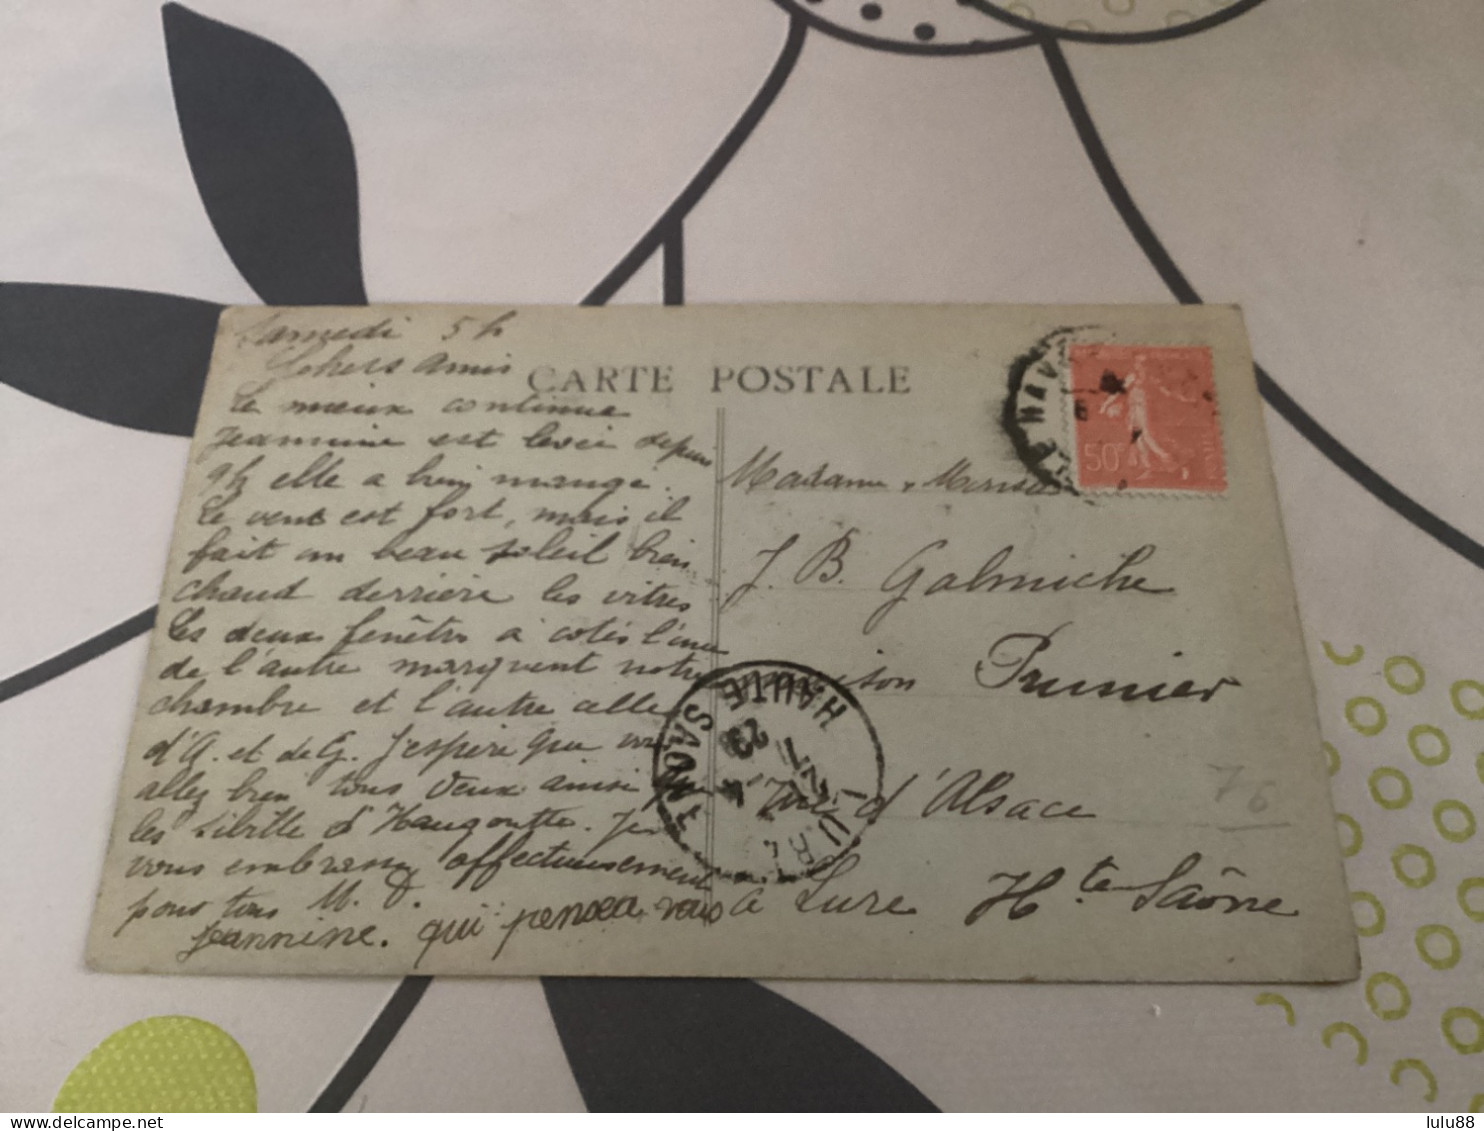 Samedi 5 h
Chers amis
CARTE POSTALE
Le mieux continue
Jeannine est levée depuis
9h elle a bien mangé.
Le vent est fort, mais il
fait un beau soleil bien
chaud derrière les vitres
Les deux fenêtres à cotés l'une
de l'autre marquent notre
chambre et l'autre celle
d'A. et de G. J'espère que vous
allez bien tous deux ainsi que
les Sibille d'Haugoutte. Je
vous embrasse affectueusement
pour tous M. D.
Jeannine. qui pense a vous
Madame, Monsieur
J. B. Galmiche
maison Prunier
rue d'Alsace
à Lure Hte Saône
76
LE HAVRE
50c
LURE
HAUTE SAONE
delcampe.net
lulu88